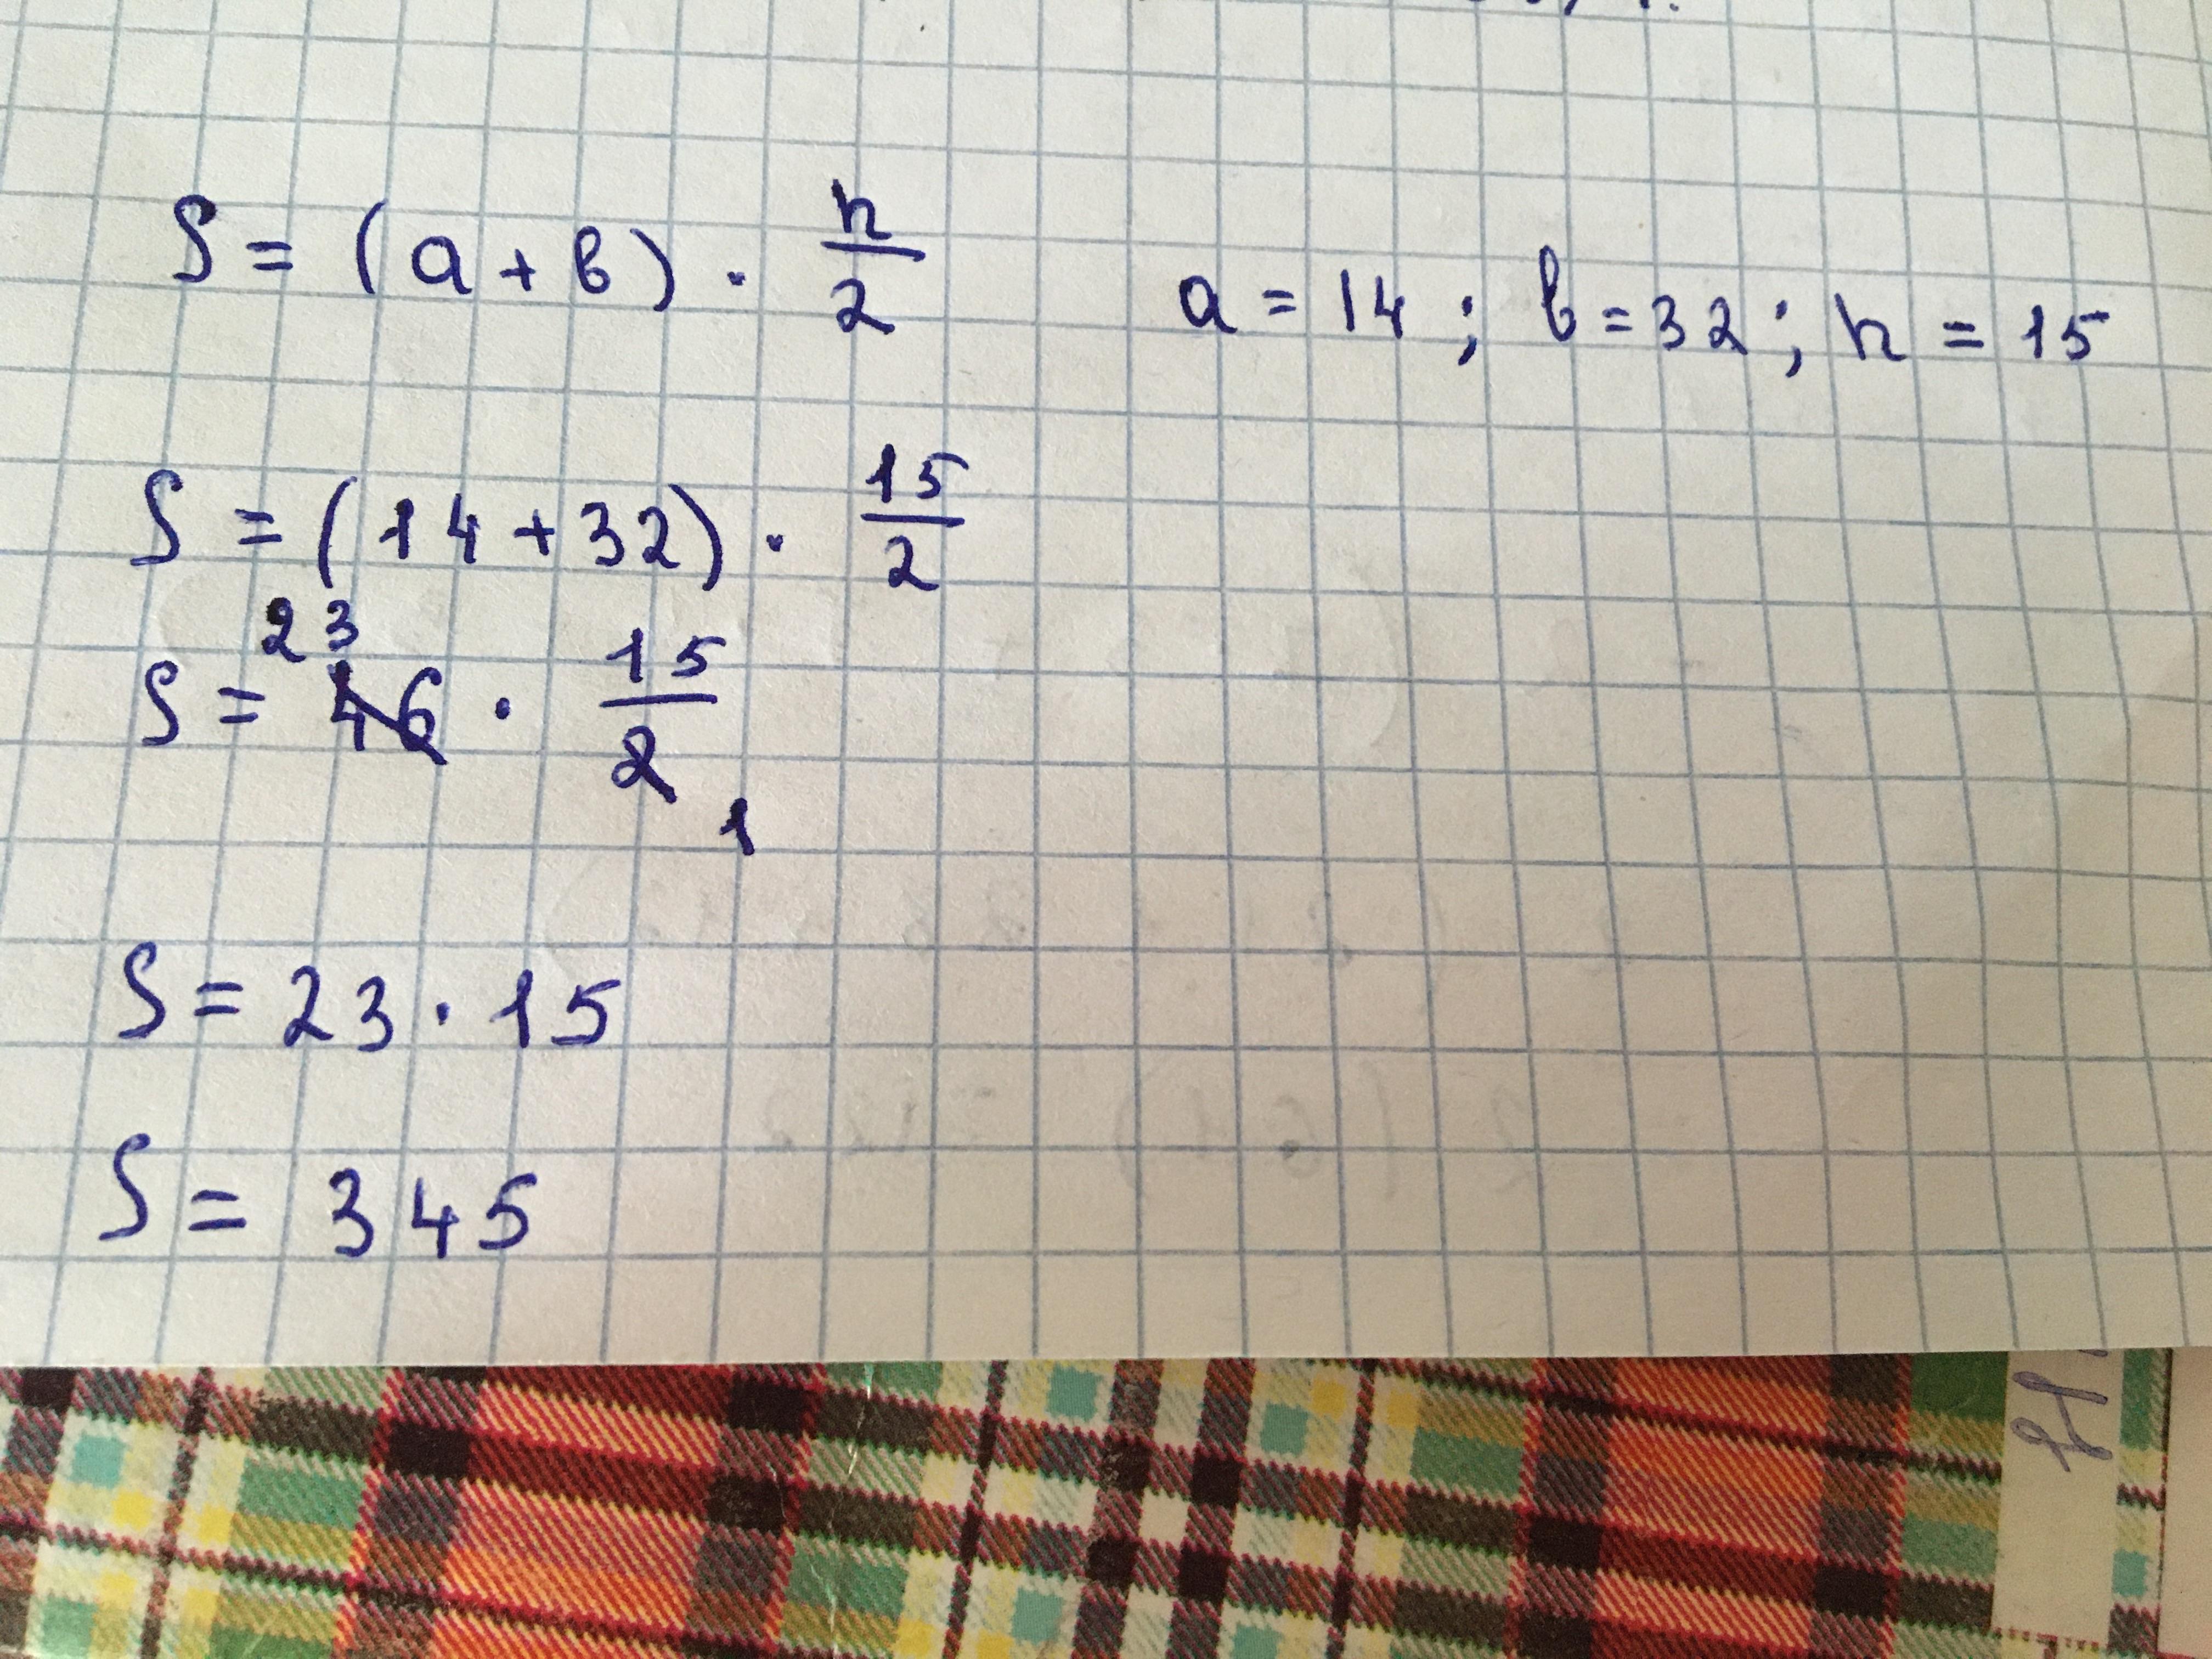 S = (a + b) · h/2
a = 14 ; b = 32 ; h = 15
S = (14 + 32) · 15/2
23
S = 46 · 15/2
1
S = 23 · 15
S = 345